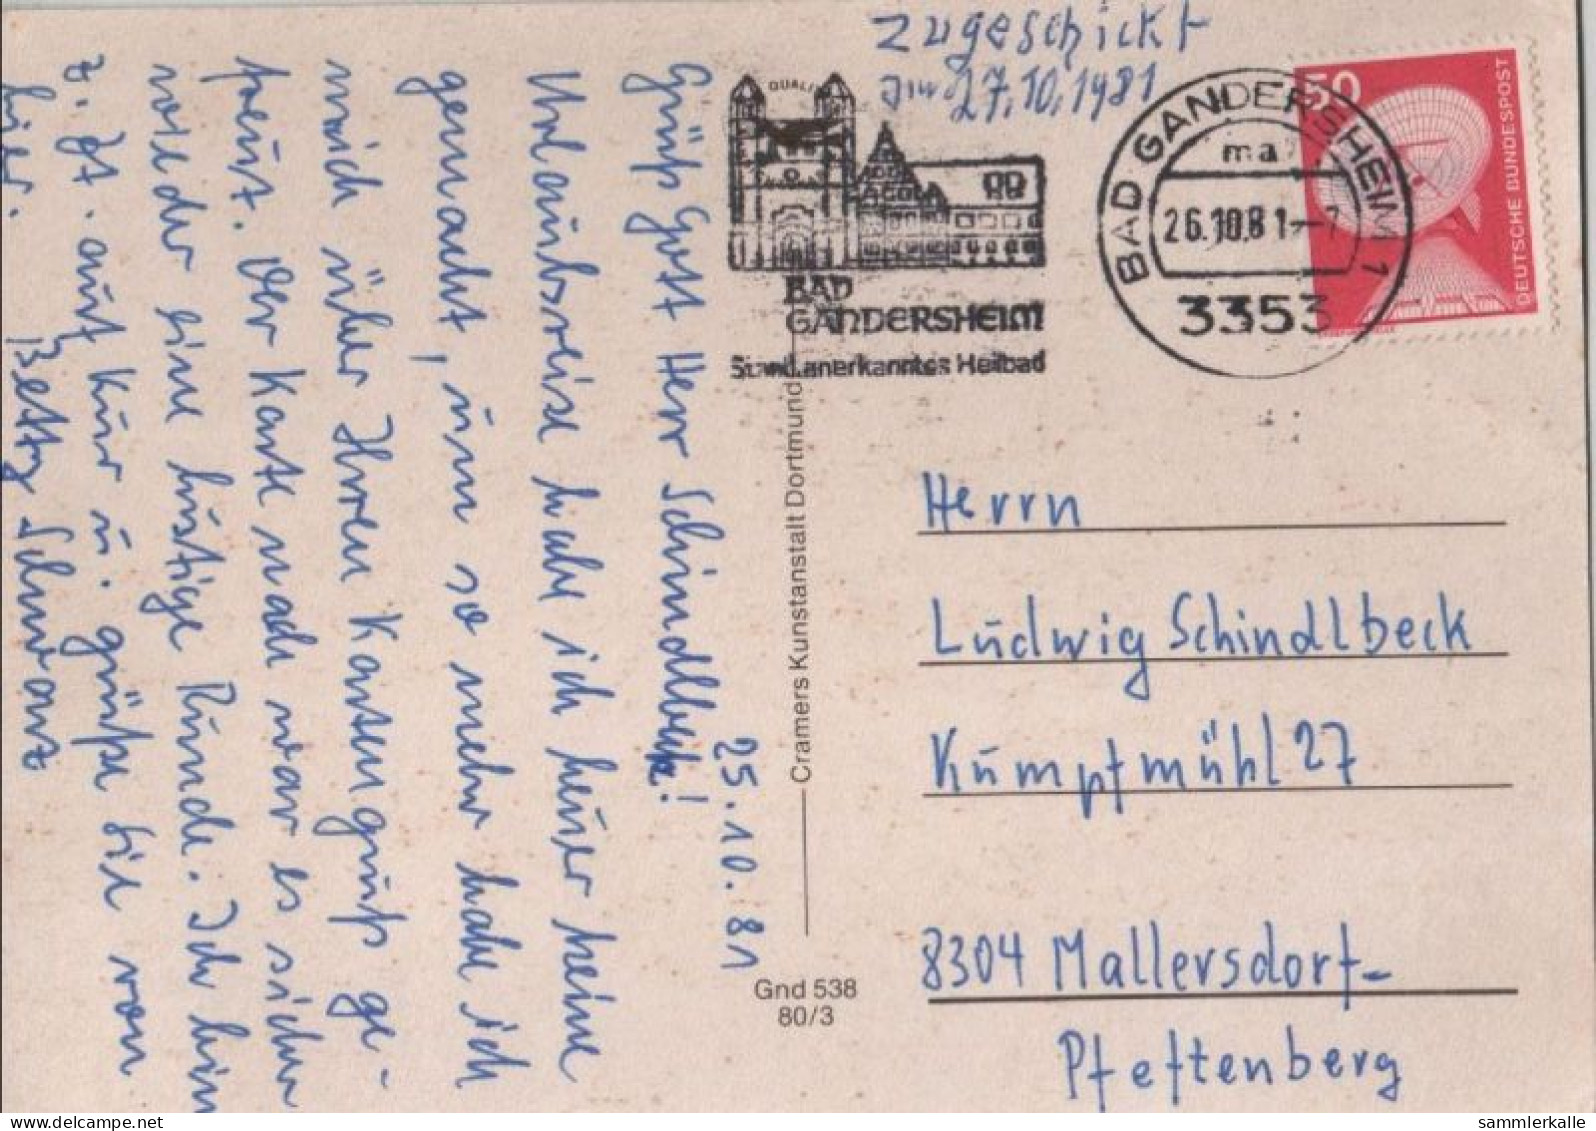 zugeschickt
am 27.10.1981
QUALI
BAD
GANDERSHEIM
Staatl. anerkanntes Heilbad
BAD GANDERSHEIM 1
ma
26.10.81-
3353
50
DEUTSCHE BUNDESPOST
25.10.81
Grüß Gott Herr Schindlbeck!
Urlaubsreise habe ich heuer keine
gemacht, um so mehr habe ich
mich über Ihren Kartengruß ge-
freut. Der Karte nach war es sicher
wieder eine lustige Runde. Ich bin
z. Zt. auf Kur u. grüße Sie von
hier.
Betty Schwarz
Cramers Kunstanstalt Dortmund
Gnd 538
80/3
Herrn
Ludwig Schindlbeck
Kumpfmühl 27
8304 Mallersdorf-
Pfeffenberg
www.delcampe.net
sammlerkalle